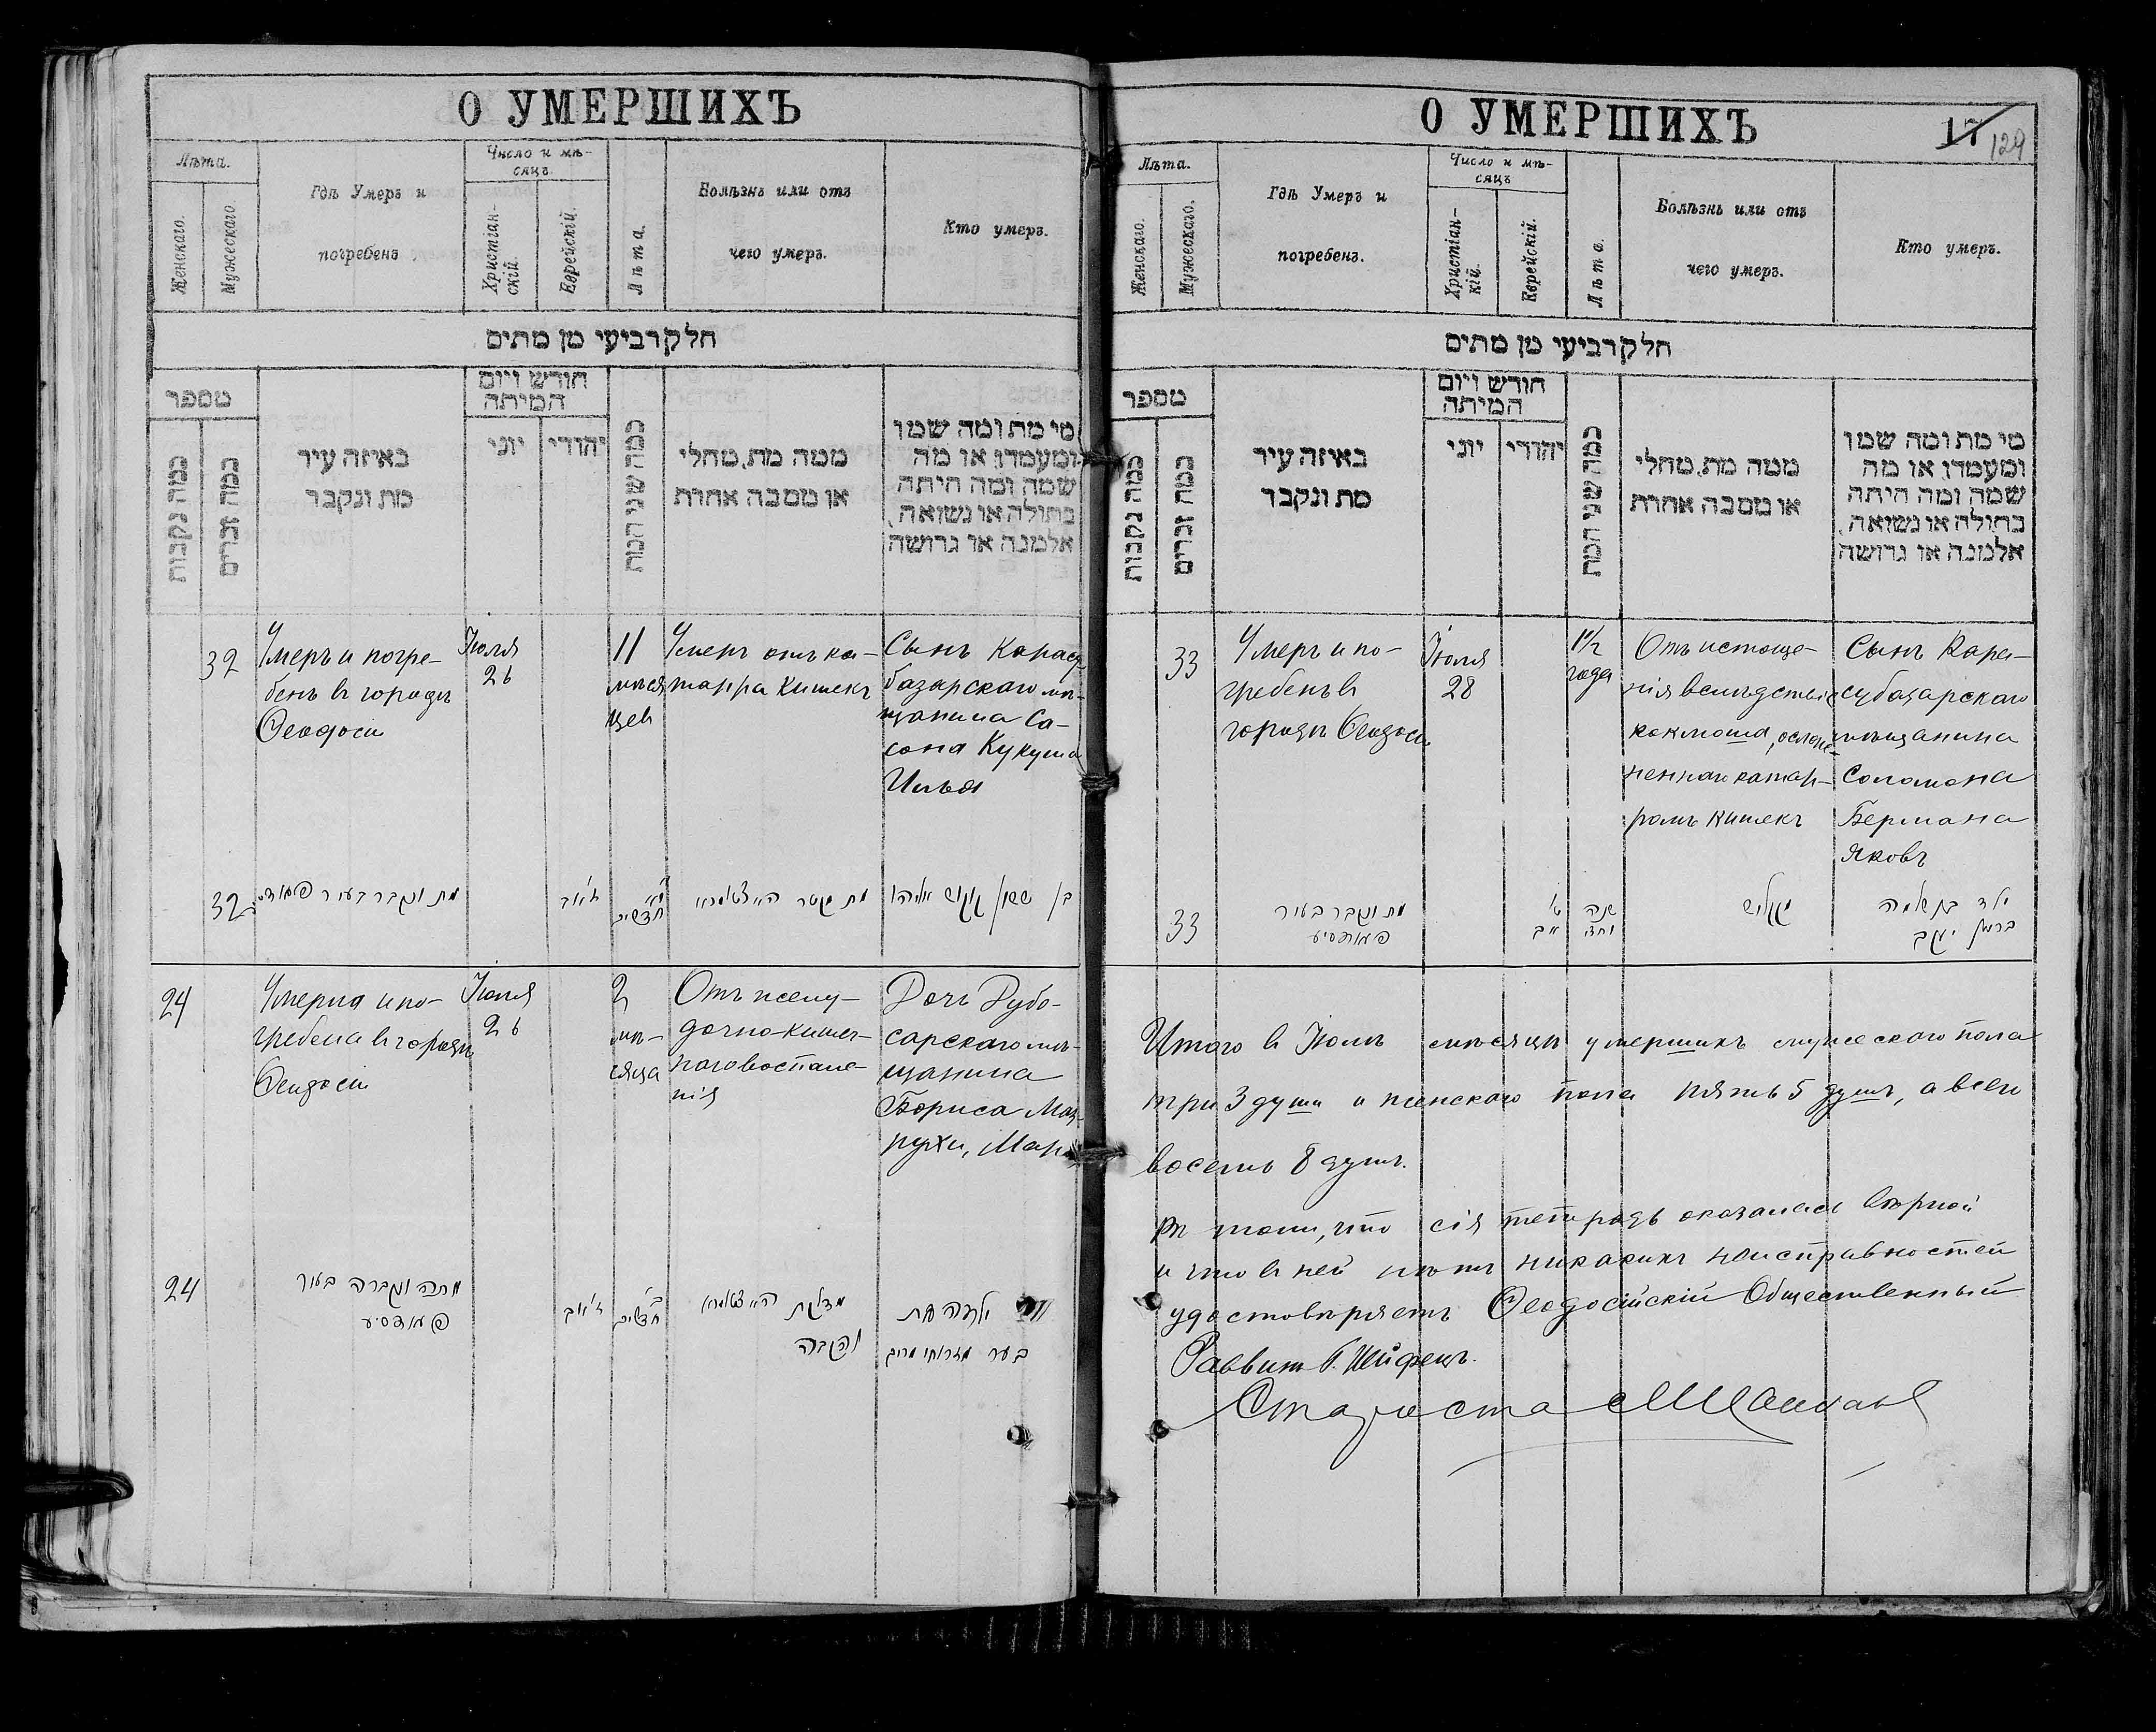 О УМЕРШИХЪ
Лѣта.
Женскаго.
Мужескаго
Гдѣ Умеръ и
погребенъ
Число и мѣ-
сяцъ
Христіан-
скій.
Еврейскій.
Лѣта.
Болѣзнь или отъ
чего умеръ.
Кто умеръ.
חלק רביעי מן מתים
מספר
כמה נקבות
כמה זכרים
באיזה עיר
מת ונקבר
חודש ויום
המיתה
יוני
יהודי
כמה שני המת
ממה מת, מחלי
או מסבה אחרת
מי מת ומה שמו
ומעמדו, או מה
שמה ומה היתה
בתולה או נשואה,
אלמנה או גרושה
32
Умеръ и погре-
бенъ въ городѣ
Ѳеодосіи
Іюля
26
11
мѣся
цев
Умеръ отъ ка-
тарра кишекъ
Сынъ Карасу-
базарскаго мѣ-
щанина Са-
сона Кукуша
Илья
32
מת ונקבר בעיר
ז' אב
י"א
חדשים
בן ששון קוקוש אליהו
24
Умерла и по-
гребена въ городѣ
Ѳеодосіи
Іюля
26
2
мѣ-
сяца
Отъ желу-
дочно-кишеч-
наго воспале-
нія
Дочь Дубо-
сарскаго мѣ-
щанина
Бориса Маз-
рухи, Марі
24
מתה ונקברה בעיר
פעאדסיע
ז' אב
ב'
חדשים
מדלקת
והקבה
О УМЕРШИХЪ
17
129
Лѣта.
Женскаго.
Мужескаго.
Гдѣ Умеръ и
погребенъ.
Число и мѣ-
сяцъ
Христіан-
кій.
Еврейскій.
Лѣта.
Болѣзнь или отъ
чего умеръ.
Кто умеръ.
חלק רביעי מן מתים
מספר
כמה נקבות
כמה זכרים
באיזה עיר
מת ונקבר
חודש ויום
המיתה
יוני
יהודי
כמה שני המת
ממה מת, מחלי
או מסבה אחרת
מי מת ומה שמו
ומעמדו, או מה
שמה ומה היתה
בתולה או נשואה,
אלמנה או גרושה
33
Умеръ и по-
гребенъ въ
городѣ Ѳеодосіи
Іюля
28
1 1/2
года
Отъ истоще-
нія вслѣдствіе
коклюша, ослож-
неннаго катар-
ромъ кишекъ
Сынъ Кара-
субазарскаго
мѣщанина
Соломона
Бермана
Яковъ
33
מת ונקבר בעיר
פעאדסיע
ט'
אב
שנה
וחצי
ילד בן שלמה
ברמן יעקב
Итого въ Іюлѣ мѣсяцѣ умершихъ мужескаго пола
три 3 души и женскаго пола пять 5 душъ, а всего
восемь 8 душъ.
Въ томъ, что сія тетрадь оказалась вѣрной
и что въ ней нѣтъ никакихъ неисправностей
удостовѣряетъ Ѳеодосійскій Общественный
Раввинъ Б. Хейфецъ.
Староста